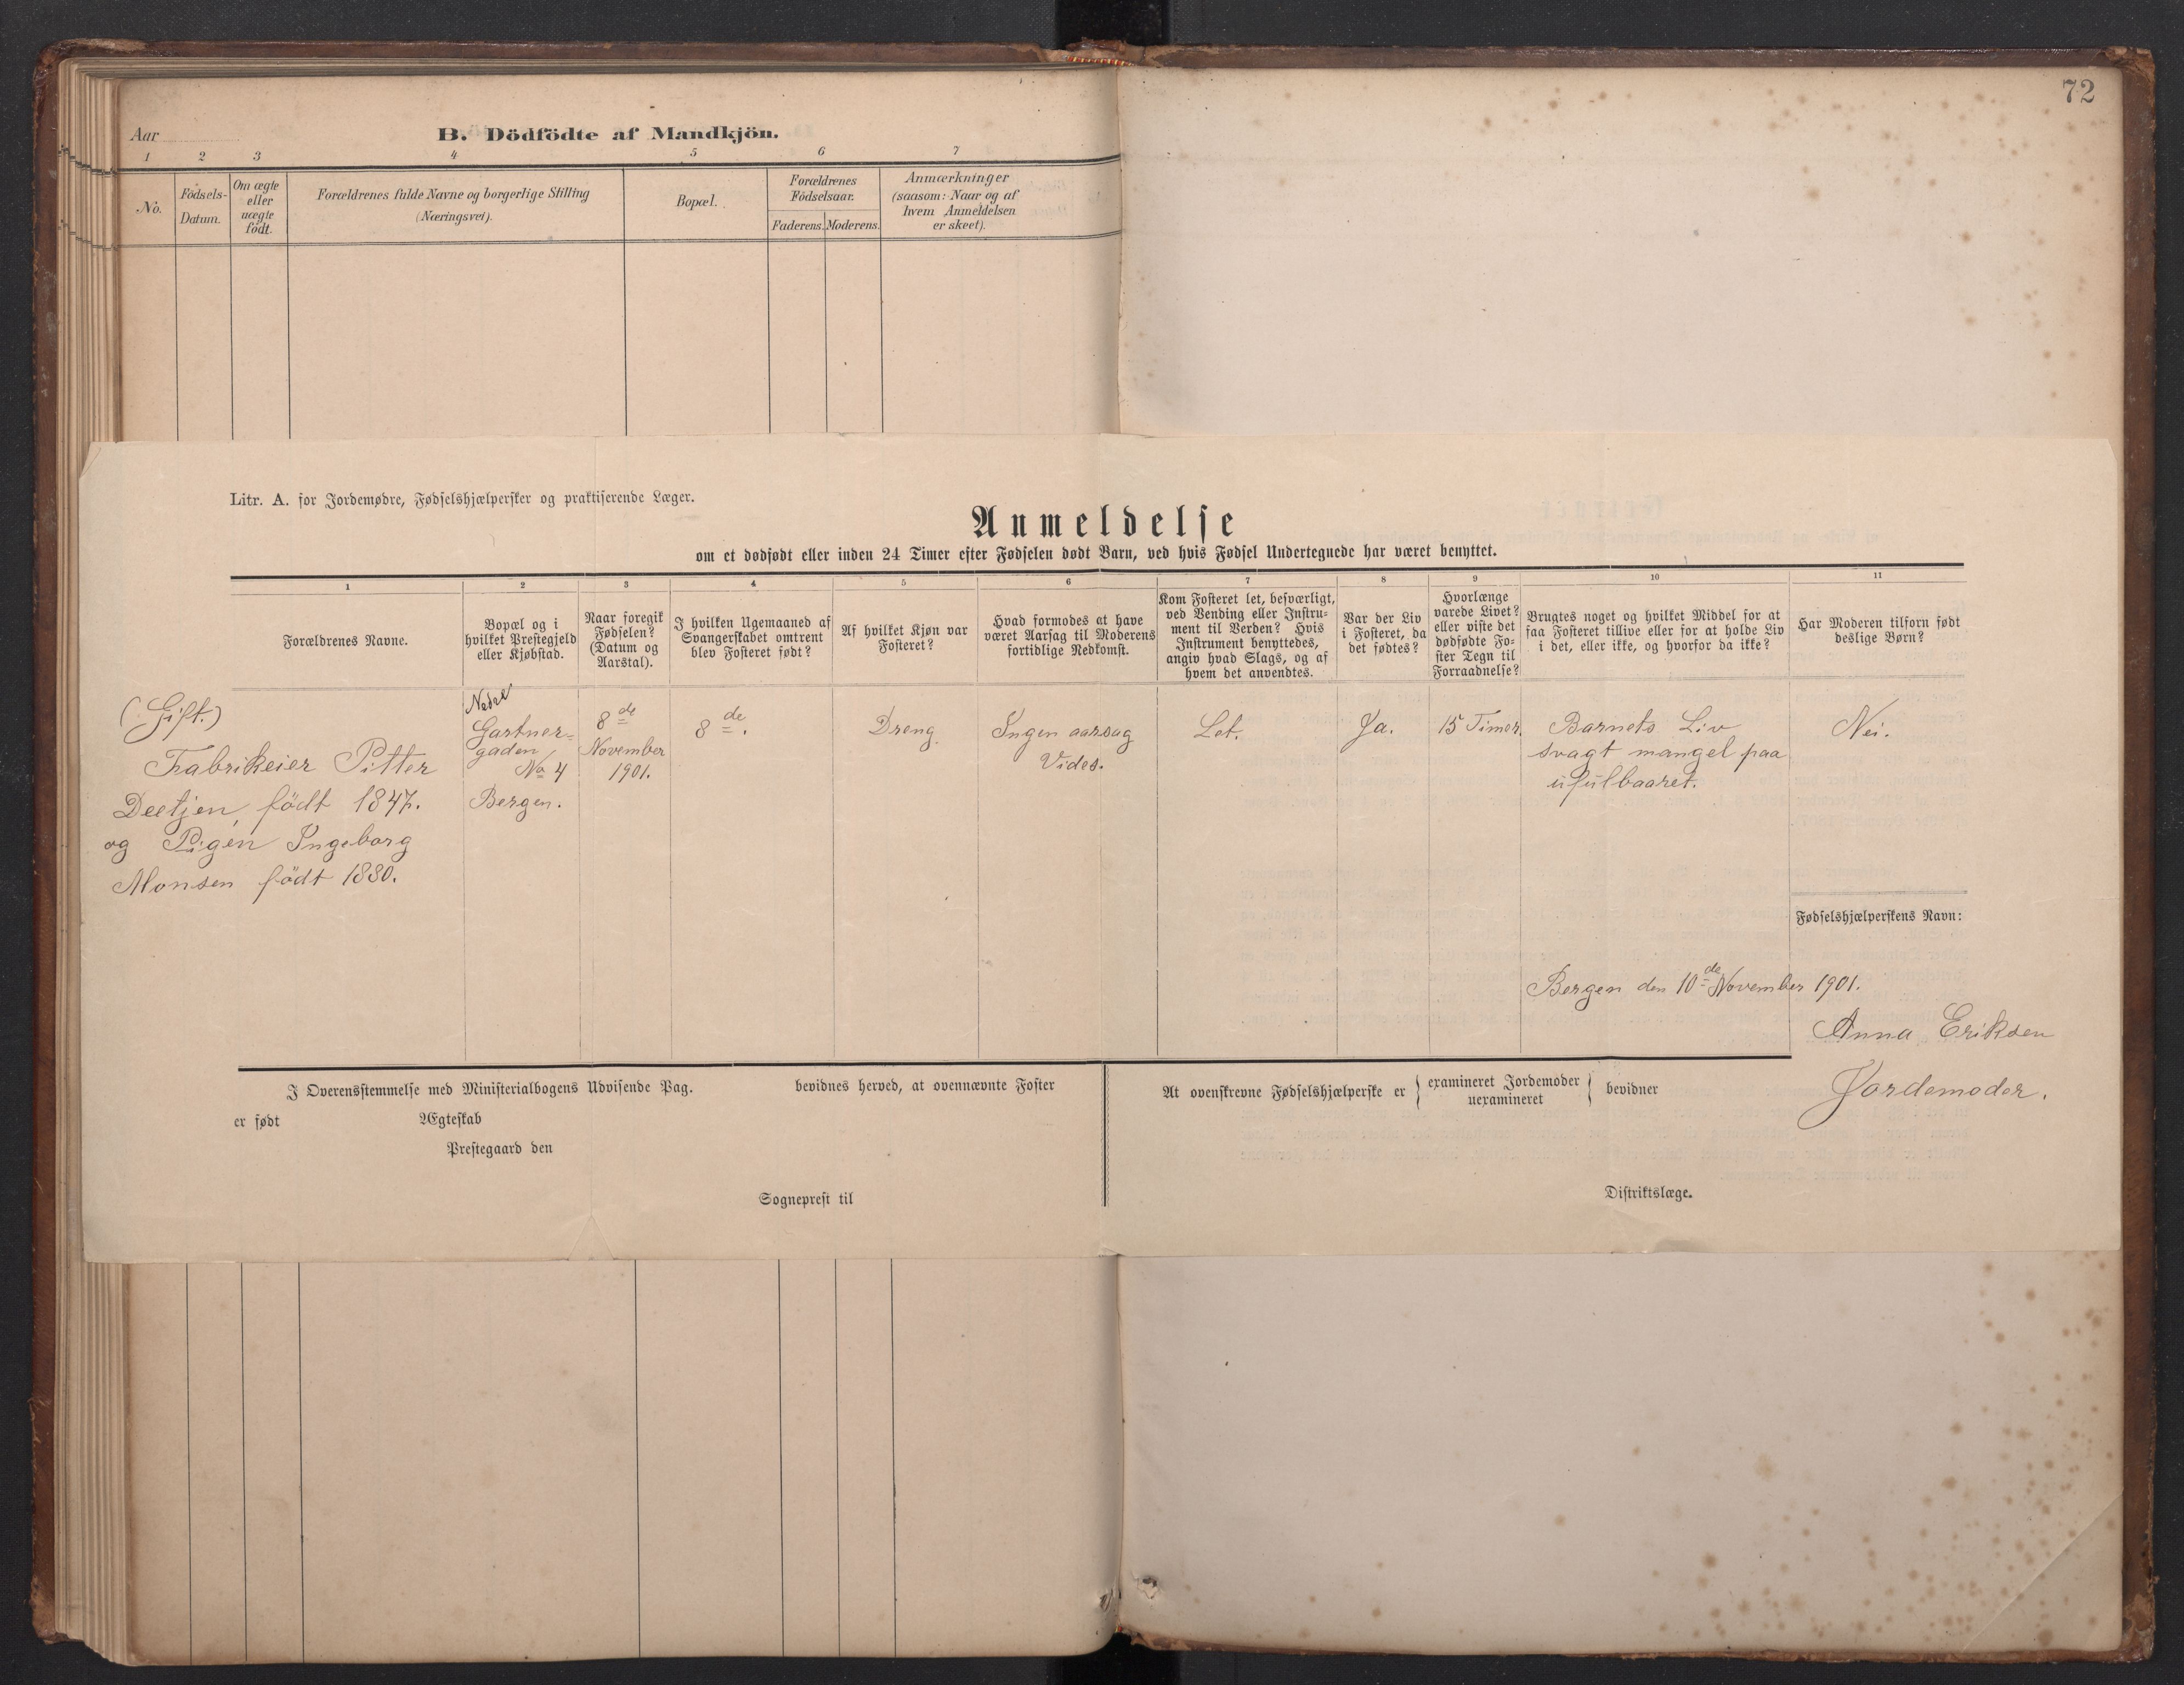 72
Aar
B. Dödfödte af Mandkjön.
1 2 3 4 5 6 7
No.
Födsels-
Datum.
Om ægte
eller
uægte
födt.
Forældrenes fulde Navne og borgerlige Stilling
(Næringsvei).
Bopæl.
Forældrenes
Födselsaar.
Faderens. Moderens.
Anmærkninger
(saasom: Naar og af
hvem Anmeldelsen
er skeet).
Litr. A. for Jordemødre, Fødselshjælpersker og praktiserende Læger.
Anmeldelse
om et dødfødt eller inden 24 Timer efter Fødselen dødt Barn, ved hvis Fødsel Undertegnede har været benyttet.
1 2 3 4 5 6 7 8 9 10 11
Forældrenes Navne.
Bopæl og i
hvilket Prestegjeld
eller Kjøbstad.
Naar foregik
Fødselen?
(Datum og
Aarstal).
I hvilken Ugemaaned af
Svangerskabet omtrent
blev Fosteret født?
Af hvilket Kjøn var
Fosteret?
Hvad formodes at have
været Aarsag til Moderens
fortidlige Nedkomst.
Kom Fosteret let, besværligt,
ved Vending eller Instru-
ment til Verden? Hvis
Instrument benyttedes,
angiv hvad Slags, og af
hvem det anvendtes.
Var der Liv
i Fosteret, da
det fødtes?
Hvorlænge
varede Livet?
eller viste det
dødfødte Fo-
ster Tegn til
Forraadnelse?
Brugtes noget og hvilket Middel for at
faa Fosteret tillive eller for at holde Liv
i det, eller ikke, og hvorfor da ikke?
Har Moderen tilforn født
deslige Børn?
(Gift.)
Fabrikeier Pitter
Deetjen, födt 1847.
og Pigen Ingeborg
Monsen födt 1880.
Nedre
Gartner=
gaden
No 4
Bergen.
8de
November
1901.
8de.
Dreng.
Ingen aarsag
Vides.
Let.
Ja.
15 Timer.
Barnets Liv
svagt mangel paa
ufulbaaret.
Nei.
Fødselshjælperskens Navn:
Bergen den 10de November 1901.
Anna Eriksen
Jordemoder.
I Overensstemmelse med Ministerialbogens Udvisende Pag. bevidnes herved, at ovennævnte Foster
er født Ægteskab
Prestegaard den
Sogneprest til
At ovenskrevne Fødselshjælperske er { examineret Jordemoder } bevidner
uexamineret
Distriktslæge.